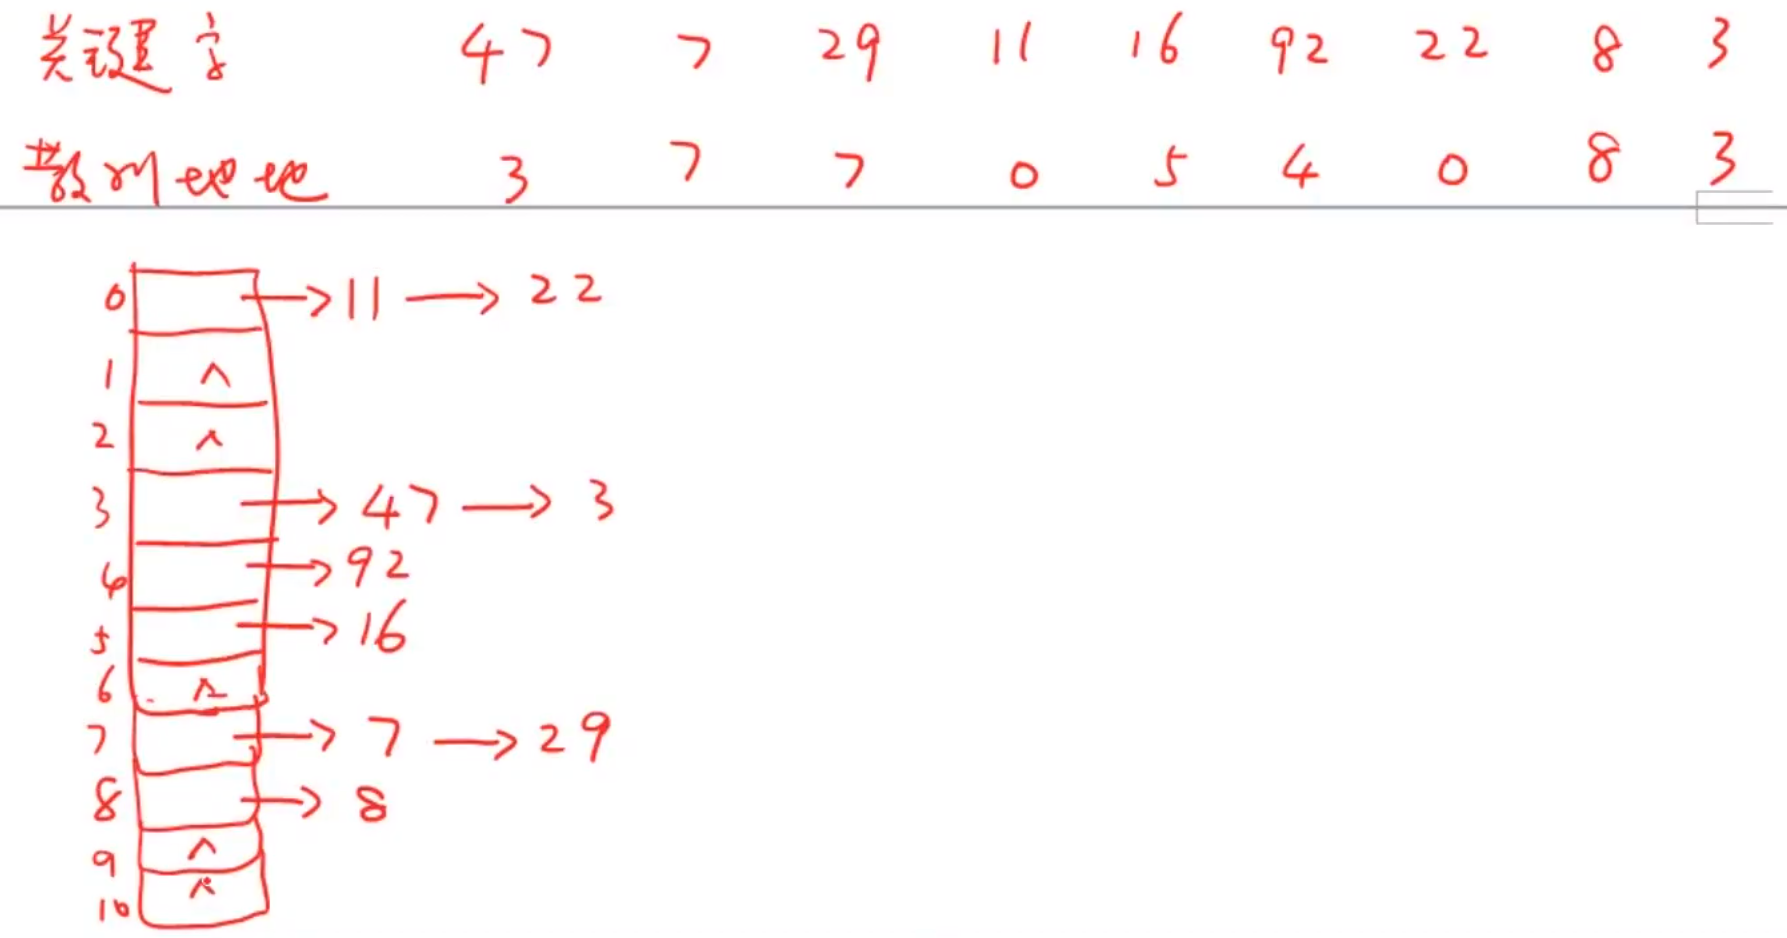 关键字 47 7 29 11 16 92 22 8 3
散列地址 3 7 7 0 5 4 0 8 3
0 → 11 → 22
1 ^
2 ^
3 → 47 → 3
4 → 92
5 → 16
6 ^
7 → 7 → 29
8 → 8
9 ^
10 ^